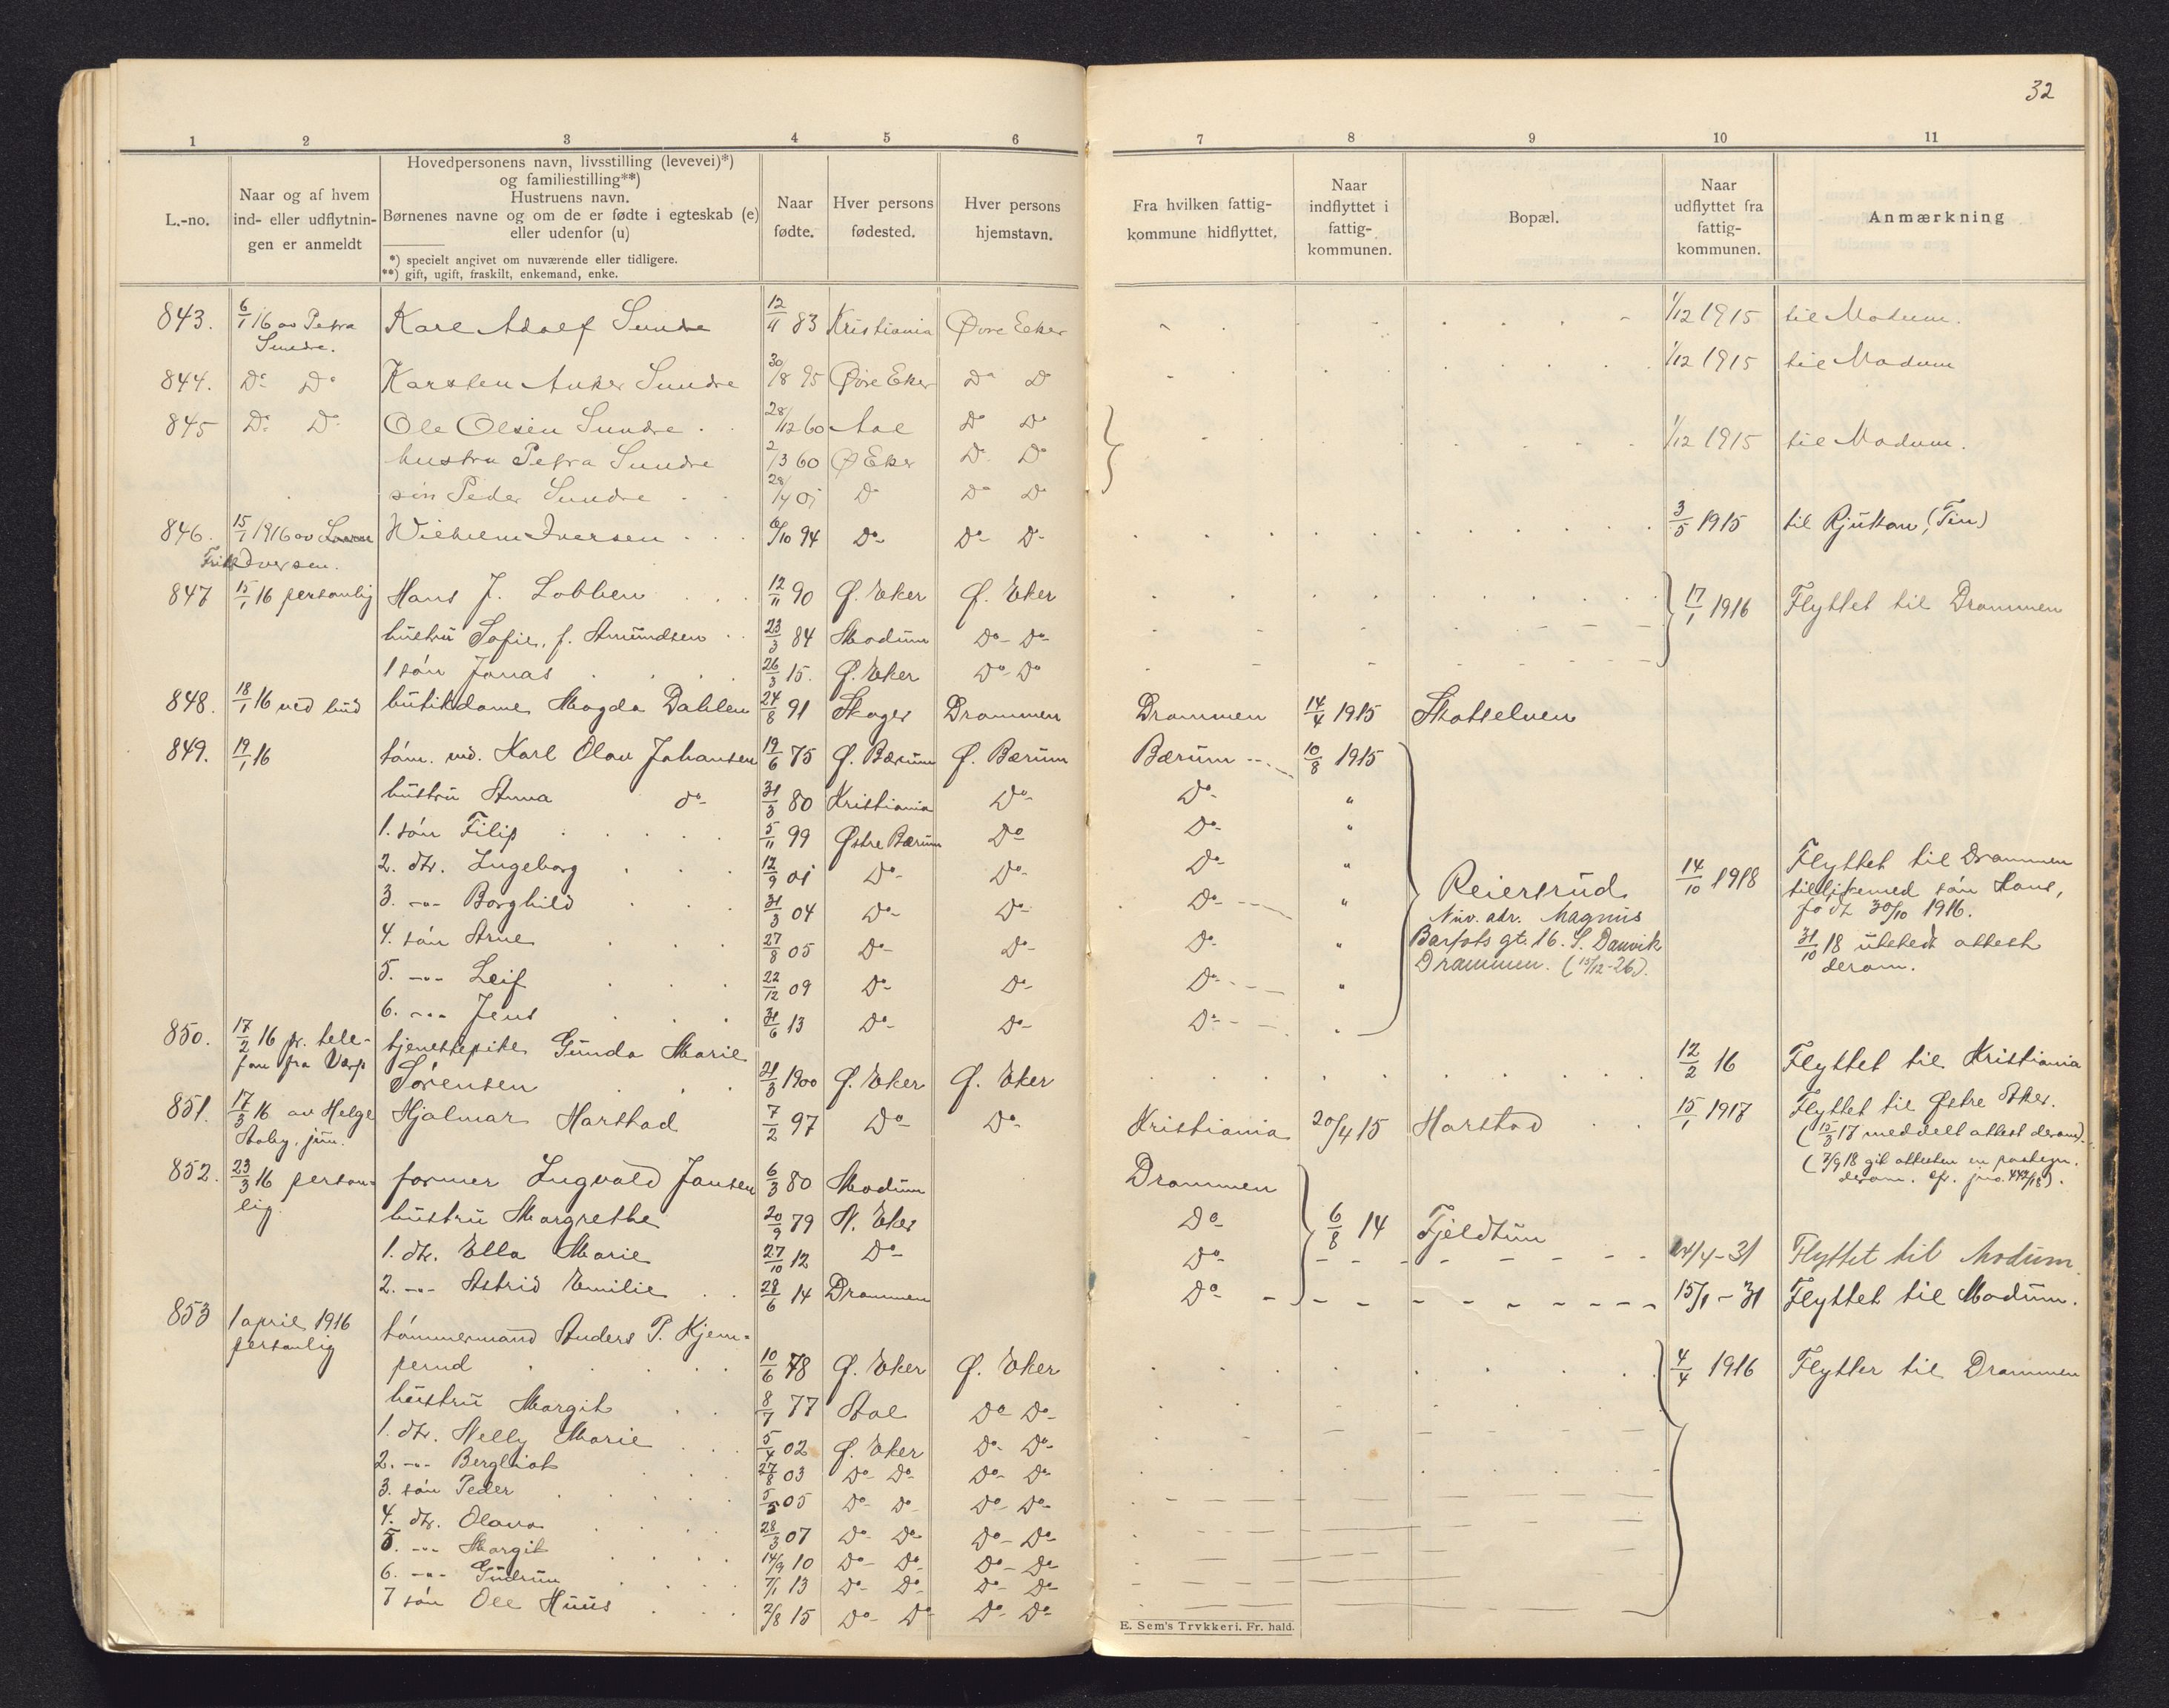 32
1 2 3 4 5 6 7 8 9 10 11
L.-no.
Naar og af hvem
ind- eller udflytnin-
gen er anmeldt
Hovedpersonens navn, livsstilling (levevei)*)
og familiestilling**)
Hustruens navn.
Børnenes navne og om de er fødte i egteskab (e)
eller udenfor (u)
*) specielt angivet om nuværende eller tidligere.
**) gift, ugift, fraskilt, enkemand, enke.
Naar
fødte.
Hver persons
fødested.
Hver persons
hjemstavn.
Fra hvilken fattig-
kommune hidflyttet.
Naar
indflyttet i
fattig-
kommunen.
Bopæl.
Naar
udflyttet fra
fattig-
kommunen.
Anmærkning
843. 6/1 16 av Petra Karl Adolf Sundre 12/11 83 Kristiania Øvre Eeker 1/12 1915 til Modum.
Sundre.
844. Do Do Karsten Anker Sundre 30/8 95 Øvre Eker Do D 1/12 1915 til Modum
845 Do Do Ole Olsen Sundre 28/12 60 Aal Do Do 1/12 1915 til Modum.
hustru Petra Sundre 2/3 60 Ø Eker Do Do
søn Peder Sundre D Do Do
846. 15/1 1916 av Wilhelm Iversen 6/10 94 Do Do D 3/5 1915 til Rjukan, (Tin)
Iversen.
847 15/1 16 personlig Hans J. Lobben 12/11 90 Ø. Eker Ø. Eker 17/1 1916 Flyttet til Drammen
hustru Sofie, f. Amundsen 23/3 84 Modum Do Do
1 søn Jonas 26/3 15. Ø. Eker Do Do
848. 18/1 16 ved bud butikdame Magda Dahlen 24/8 91 Skoger Drammen Drammen 14/4 1915 Skotselven
849. 19/1 16 tøm. md. Karl Olav Johansen 19/6 75 Ø. Bærum Ø. Bærum Bærum 10/8 1915
hustru Anna do 31/3 80 Kristiania Do Do "
1. søn Filip 5/11 99 Østre Bærum Do Do "
2. dtr. Ingeborg 12/9 01 Do Do Do "
3. -"- Borghild 31/3 04 Do Do Do " Reiersrud 14/10 1918 Flyttet til Drammen
tillikemed søn Hans,
født 30/10 1916.
Nuv. adr. Magnus
Barfots gt. 16. S. Danvik
Drammen. (13/12-26).
31/10 18 utstedt attest
derom.
4. søn Arne 27/8 05 Do Do Do "
5. -"- Leif 22/12 09 Do Do Do "
6. -"- Jens 31/6 13 Do Do Do "
850. 17/2 16 pr. tele- tjenestepike Gunda Marie
fon fra Sørensen 21/3 1900 Ø. Eker Ø. Eker 12/2 16 Flyttet til Kristiania
851. 17/3 16 av Helge Hjalmar Harstad 7/2 97 Do Do Kristiania 20/4 15 Harstad 15/1 1917 Flyttet til Østre Aker.
Aaby, jun. (15/3 17 meddelt attest derom).
(7/9 18 git attesten en paategn.
derom. cfr. jno. 442/18).
852. 23/3 16 person- former Ingvald Jansen 6/3 80 Modum Drammen
lig. hustru Margrethe 20/9 79 N. Eker Do 6/8 14 Fjeldtun
1. dtr. Ella Marie 27/10 12 Do Do /4-31 Flyttet til Modum.
2. -"- Astrid Emilie 28/6 14 Drammen Do 15/1-31 Flyttet til Modum.
853 1 april 1916 tømmermand Anders P. Kjem-
personlig perud 10/6 78 Ø. Eker Ø. Eker 4/4 1916 Flytter til Drammen
hustru Margit 8/7 77 Aal Do Do
1. dtr. Nelly Marie 5/4 02 Ø. Eker Do Do
2. -"- Bergliot 27/8 03 Do Do Do Do
3. søn Peder 5/5 05 Do Do Do Do
4. dtr. Olava 28/3 07 Do Do Do Do
5. -"- Margit 14/9 10 Do Do Do Do
6. -"- Gudrun 7/1 13 Do Do Do Do
7 søn Ole Huus 2/8 15 Do Do Do Do
E. Sem's Trykkeri. Fr. hald.